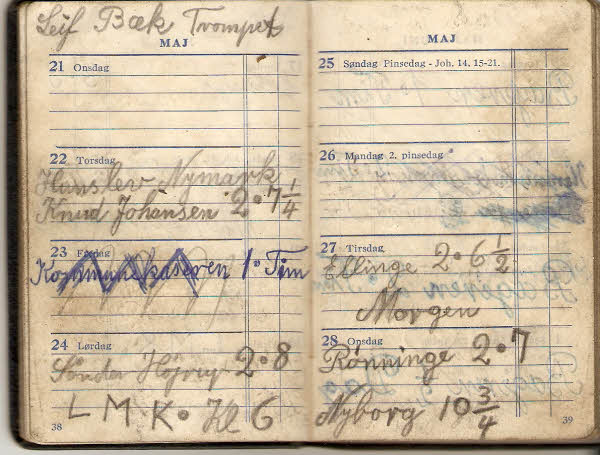 Leif Bæk Trompet
MAJ
21 Onsdag
22 Torsdag
Hunslev Nymark
Knud Johansen 2·7 1/4
23 Fredag
Kommunekaseren 1· Tim
24 Lørdag
Sønder Højrup 2·8
L M K· Kl 6
38
MAJ
25 Søndag Pinsedag - Joh. 14, 15-21.
26 Mandag 2. pinsedag
27 Tirsdag
Ellinge 2·6 1/2
Morgen
28 Onsdag
Rønninge 2·7
Nyborg 10 3/4
39